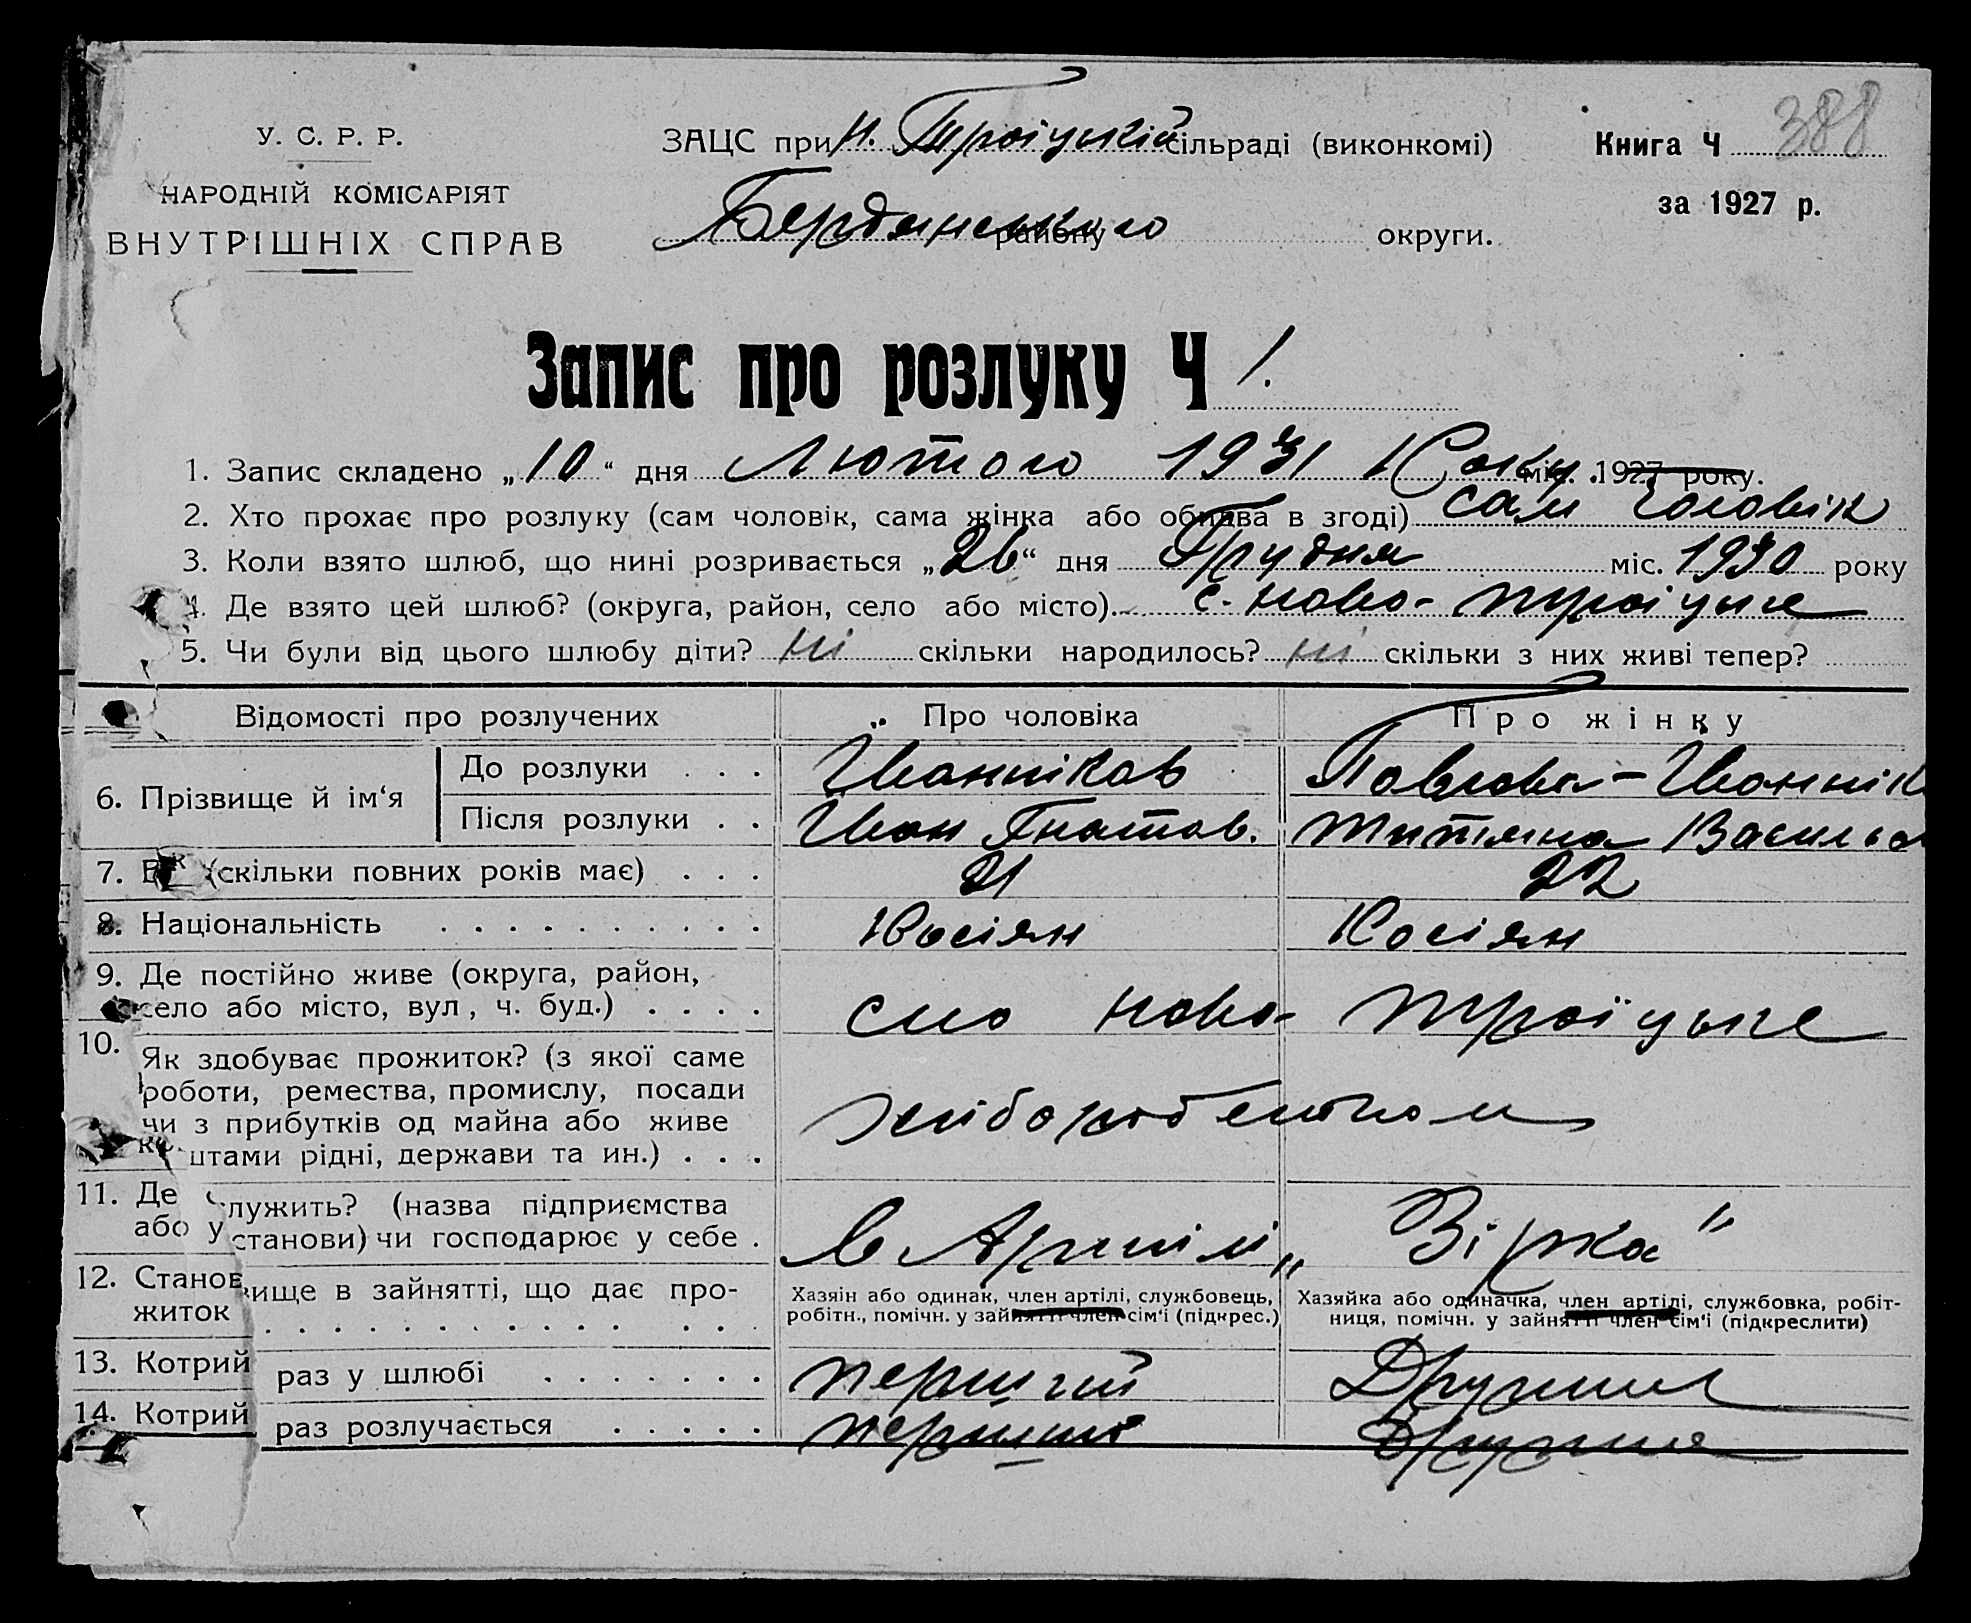 У. С. Р. Р.
НАРОДНІЙ КОМІСАРІЯТ
ВНУТРІШНІХ СПРАВ
ЗАЦС при Н. Троіцькій сільраді (виконкомі)
Бердянського району округи.
Книга Ч 388
за 1927 р.
Запис про розлуку Ч 1.
1. Запис складено „10“ дня Лютого 1931 Року міс. 1927 року.
2. Хто прохає про розлуку (сам чоловік, сама жінка або обидва в згоді) сам Чоловік
3. Коли взято шлюб, що нині розривається „26“ дня Грудня міс. 1930 року
4. Де взято цей шлюб? (округа, район, село або місто) с. Ново-Троіцьке
5. Чи були від цього шлюбу діти? ні скільки народилось? ні скільки з них живі тепер?
Відомості про розлучених Про чоловіка Про жінку
6. Прізвище й ім‘я До розлуки . . . Іванніков Павлова-Іваннік
Після розлуки . . Іван Гнатов. Титяна Василь
7. Вік (скільки повних років має) . . . 21 22
8. Національність . . . . . . . . . . Росіян Росіян
9. Де постійно живе (округа, район,
село або місто, вул, ч. буд.) . . . . сло Ново-Троїцьке
10. Як здобуває прожиток? (з якої саме
роботи, ремества, промислу, посади
чи з прибутків од майна або живе
коштами рідні, держави та ин.) . . . хліборобством
11. Де служить? (назва підприємства
або установи) чи господарює у себе . в Артілі „Зірка“
12. Становище в зайнятті, що дає про-
житок . . . . . . . . . . . . .
Хазяін або одинак, член артілі, службовець,
робітн., помічн. у зайнятті член сім‘ї (підкрес.)
Хазяйка або одиначка, член артілі, службовка, робіт-
ниця, помічн. у зайнятті член сім‘ї (підкреслити)
13. Котрий раз у шлюбі . . . . . . . перший Другий
14. Котрий раз розлучається . . . . . перший